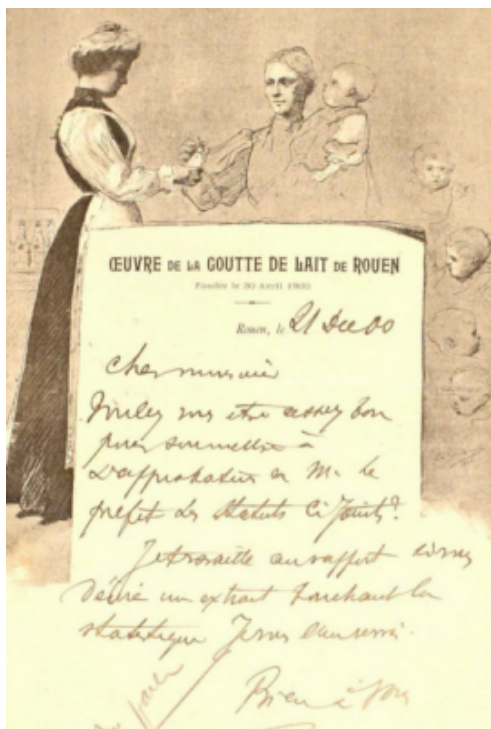 ŒUVRE DE LA GOUTTE DE LAIT DE ROUEN
Fondée le 30 Avril 1900
Rouen, le 21 Dec 00
Cher monsieur
Voulez vous etre assez bon
pour soumettre à
L'approbation de M. le
prefet les statuts ci joints?
Je travaille au rapport si vous
désirez un extrait touchant la
statistique Je vous l'enverrai.
Bien à vous